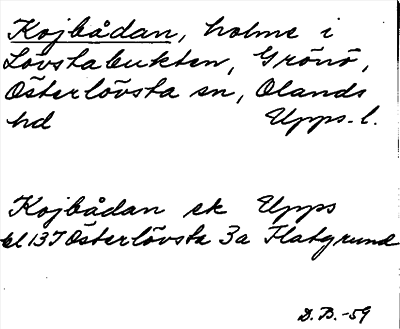 Kojbådan, holme i
Lövstabukten, Gränö,
Österlövsta sn, Olands
hd Upps. l.
Kojbådan ek Upps
bl 137 Österlövsta 3a Flatgrund
D.B.-59